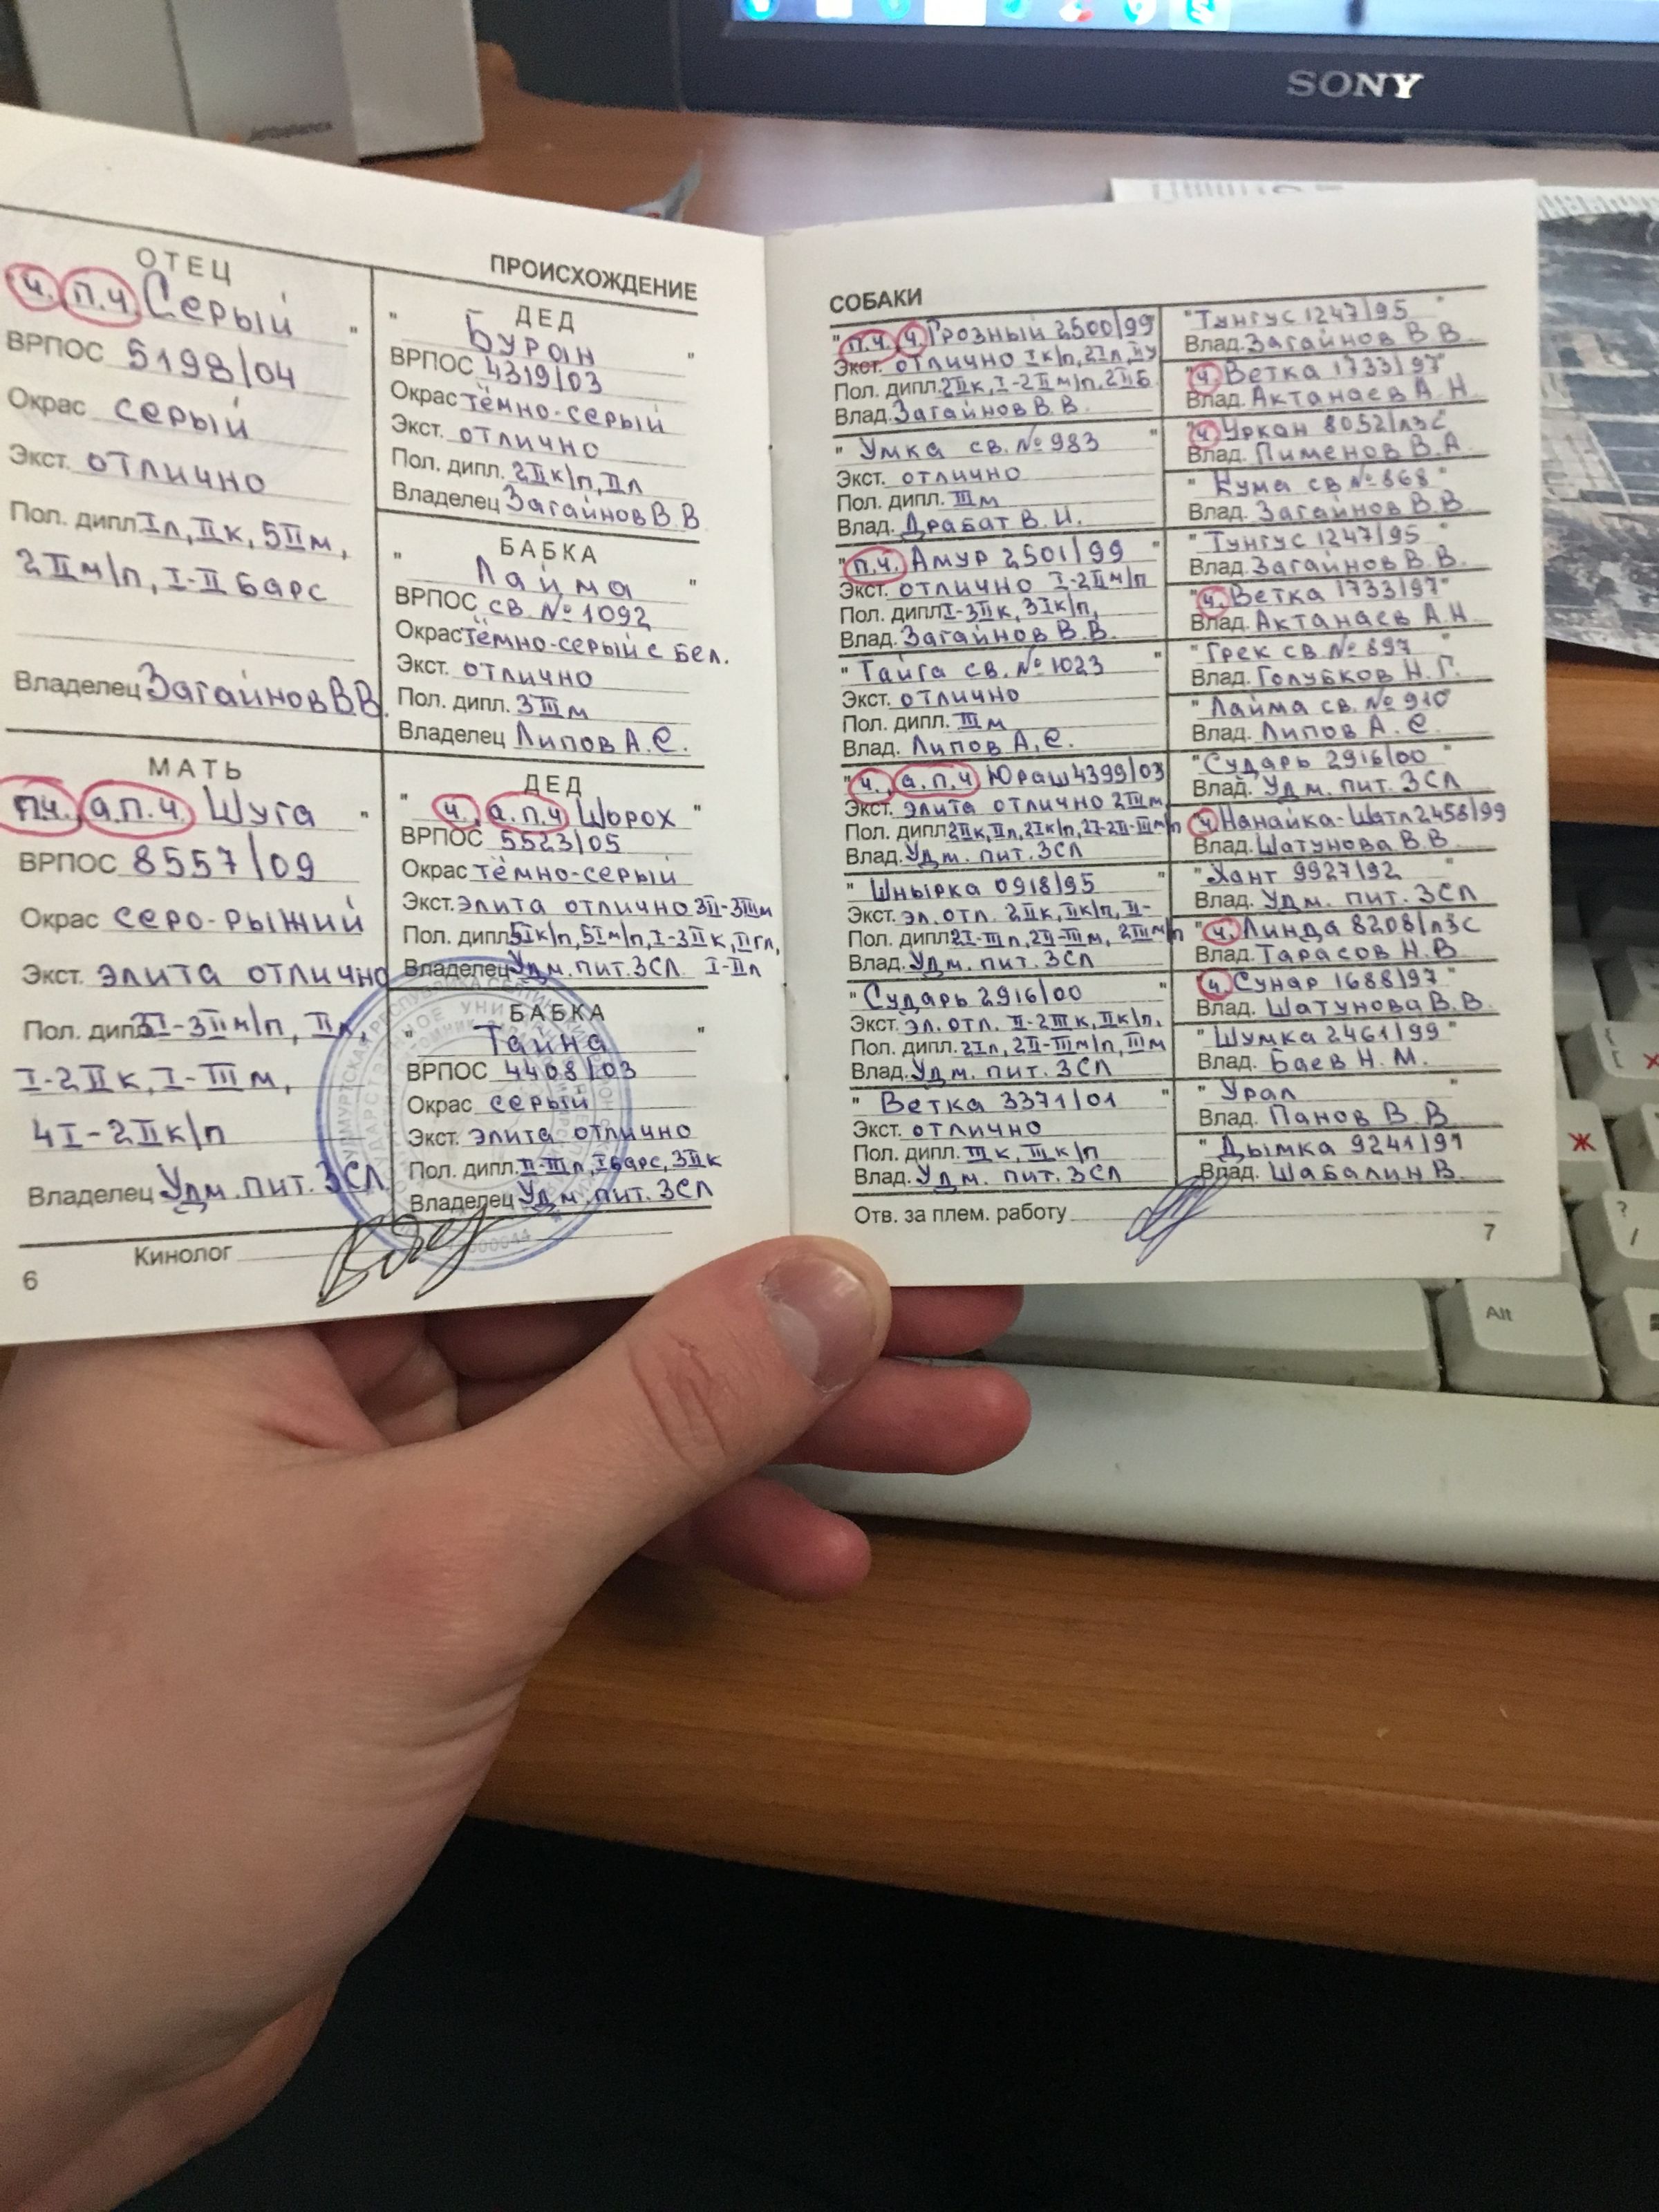 SONY
ПРОИСХОЖДЕНИЕ
ОТЕЦ
ч. п.ч. Серый "
ВРПОС 5198/04
Окрас серый
Экст. отлично
Пол. дипл. Iл, IIк, 5IIм,
2IIм/п, I-II барс
Владелец Загайнов В.В.
МАТЬ
п.ч. а.п.ч. Шуга "
ВРПОС 8557/09
Окрас серо-рыжий
Экст. элита отлично
Пол. дипл. I-3IIм/п, IIл,
I-2IIк, I-IIIм,
4I-2IIк/п
Владелец Удм. пит. ЗСЛ
ДЕД
" Буран "
ВРПОС 4319/03
Окрас тёмно-серый
Экст. отлично
Пол. дипл. 2IIк/п, IIл
Владелец Загайнов В.В
БАБКА
" Лайма "
ВРПОС св. № 1092
Окрас тёмно-серый с бел.
Экст. отлично
Пол. дипл. 3IIIм
Владелец Липов А.С.
ДЕД
" ч. а.п.ч Шорох "
ВРПОС 5523/05
Окрас тёмно-серый
Экст. элита отлично 3II-3IIIм
Пол. дипл. 5Iк/п, 5Iм/п, I-3IIк, IIгл,
Владелец Удм. пит. ЗСЛ I-IIл
БАБКА
" Тайна "
ВРПОС 4408/03
Окрас серый
Экст. элита отлично
Пол. дипл. II-IIIл, Iбарс, 3IIк
Владелец Удм. пит. ЗСЛ
Кинолог
6
СОБАКИ
" п.ч. ч. Грозный 2500/99
Экст. отлично Iк/п, 2Iл, IIу
Пол. дипл. 2IIк, I-2IIм/п, 2IIб
Влад. Загайнов В.В.
" Умка св. № 983 "
Экст. отлично
Пол. дипл. IIIм
Влад. Драбат В.И.
" п.ч. Амур 2501/99 "
Экст. отлично I-2IIм/п
Пол. дипл. I-3IIк, 3Iк/п,
Влад. Загайнов В.В.
" Тайга св. № 1023 "
Экст. отлично
Пол. дипл. IIIм
Влад. Липов А.С.
" ч. а.п.ч Юраш 4399/03
Экст. элита отлично 2IIIм
Пол. дипл. 2IIк, IIл, 2Iк/п, 2I-2II-IIIм/п
Влад. Удм. пит. ЗСЛ
" Шнырка 0918/95 "
Экст. эл. отл. 2IIк, IIк/п, II-
Пол. дипл. 2I-IIIл, 2II-IIIм, 2IIIм/п
Влад. Удм. пит. ЗСЛ
" Сударь 2916/00 "
Экст. эл. отл. II-2IIIк, IIк/п,
Пол. дипл. 2Iл, 2II-IIIм/п, IIIм
Влад. Удм. пит. ЗСЛ
" Ветка 3371/01 "
Экст. отлично
Пол. дипл. IIIк, IIIк/п
Влад. Удм. пит. ЗСЛ
"Тунгус 1247/95 "
Влад. Загайнов В.В.
ч. Ветка 1733/97"
Влад. Актанаев А.Н.
ч. Уркан 8052/лзс
Влад. Пименов В.А.
" Кума св. № 868 "
Влад. Загайнов В.В.
" Тунгус 1247/95
Влад. Загайнов В.В.
ч. Ветка 1733/97"
Влад. Актанаев А.Н.
" Грек св. № 897 "
Влад. Голубков Н.Г.
" Лайма св. № 910
Влад. Липов А.С.
"Сударь 2916/00 "
Влад. Удм. пит. ЗСЛ
ч. Нанайка-Шатл 2458/99
Влад. Шатунова В.В.
"Хант 9927/92 "
Влад. Удм. пит. ЗСЛ
" ч. Линда 8208/лзс
Влад. Тарасов Н.В
ч. Сунар 1688/97 "
Влад. Шатунова В.В.
" Шумка 2461/99 "
Влад. Баев Н.М.
" Урал "
Влад. Панов В.В
" Дымка 9241/91
Влад. Шабалин В.
Отв. за плем. работу
7
Ж
?
/
Alt